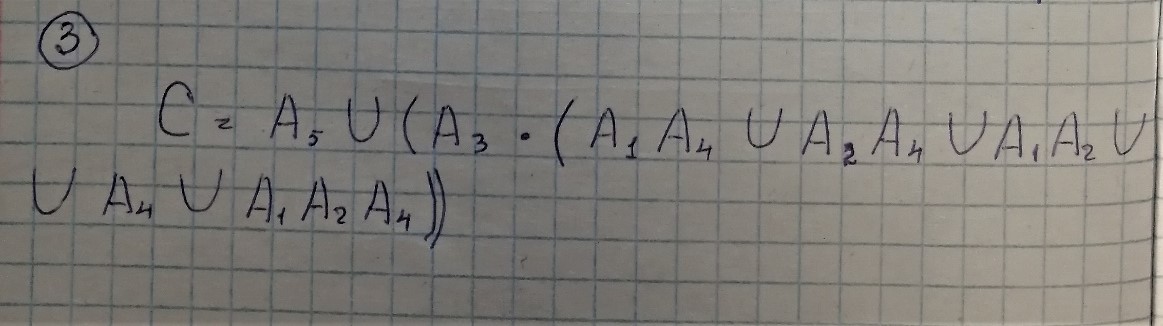 ③
C = A₅ ∪ (A₃ · (A₁A₄ ∪ A₂A₄ ∪ A₁A₂ ∪
∪ A₄ ∪ A₁A₂A₄))